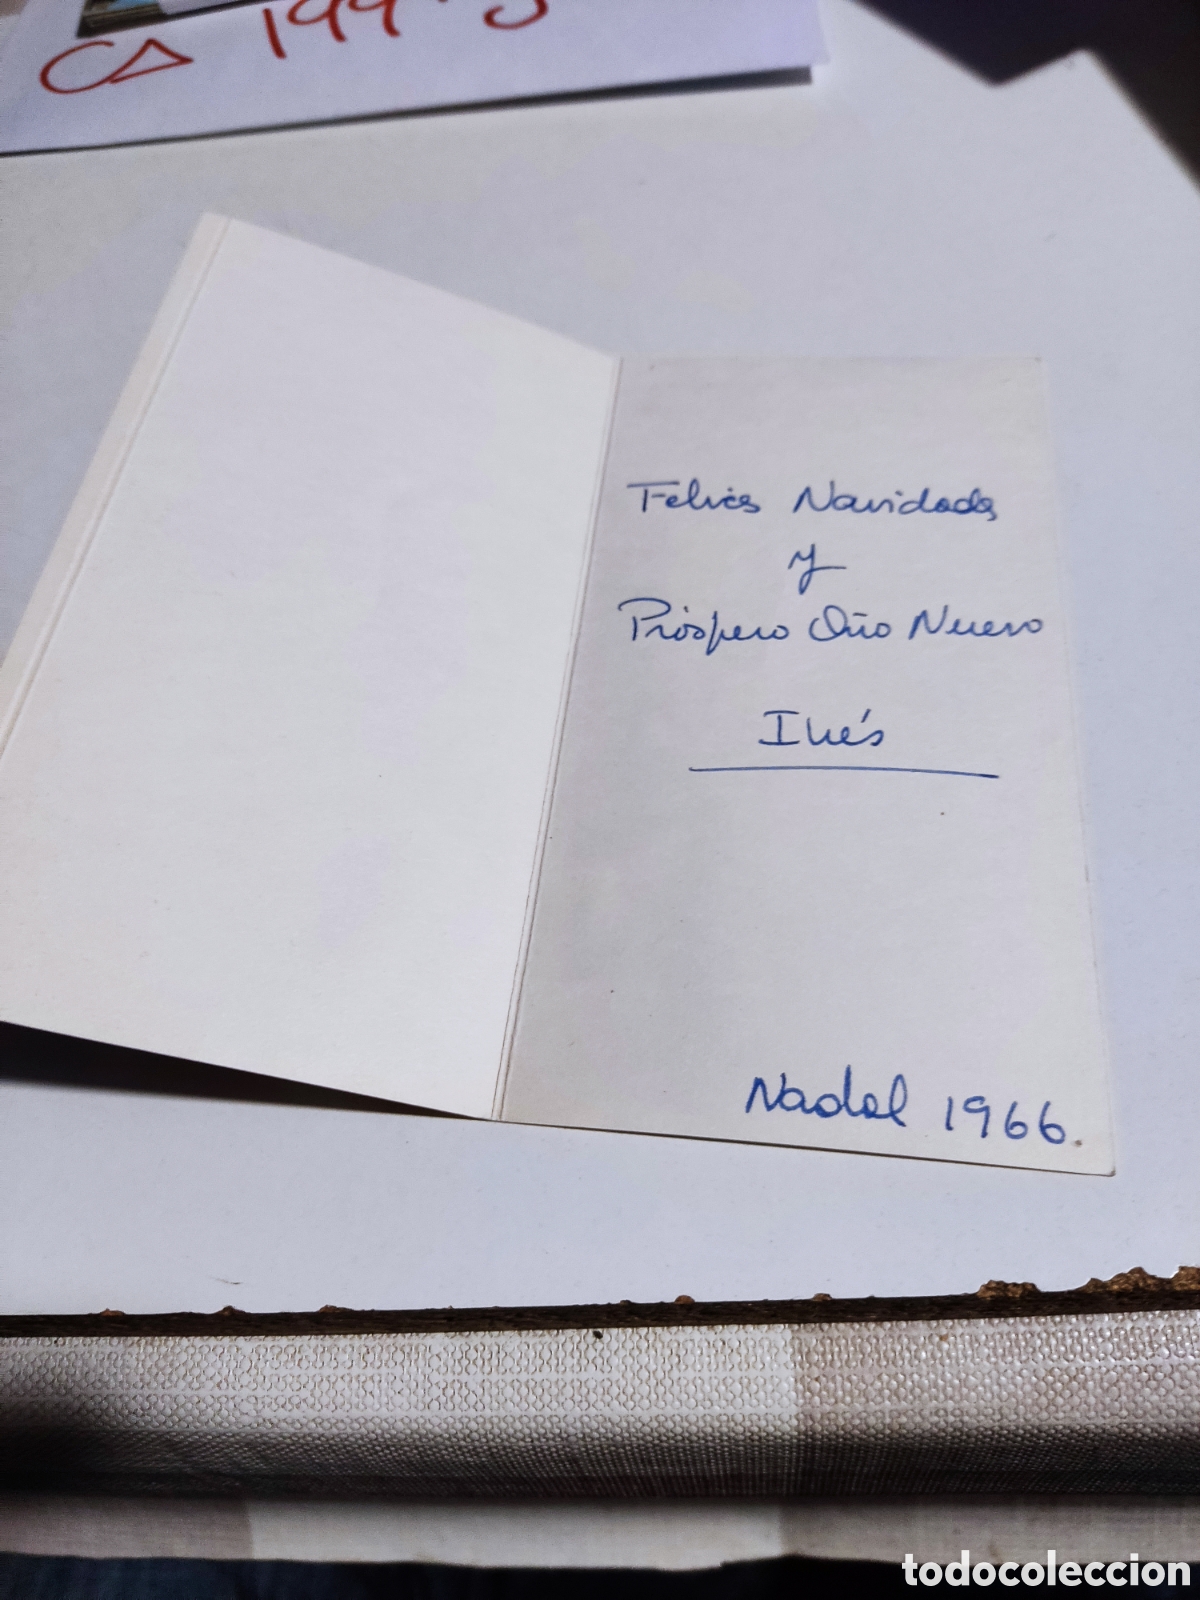 Felices Navidades
y
Próspero Año Nuevo
Inés
Nadal 1966.
todocoleccion